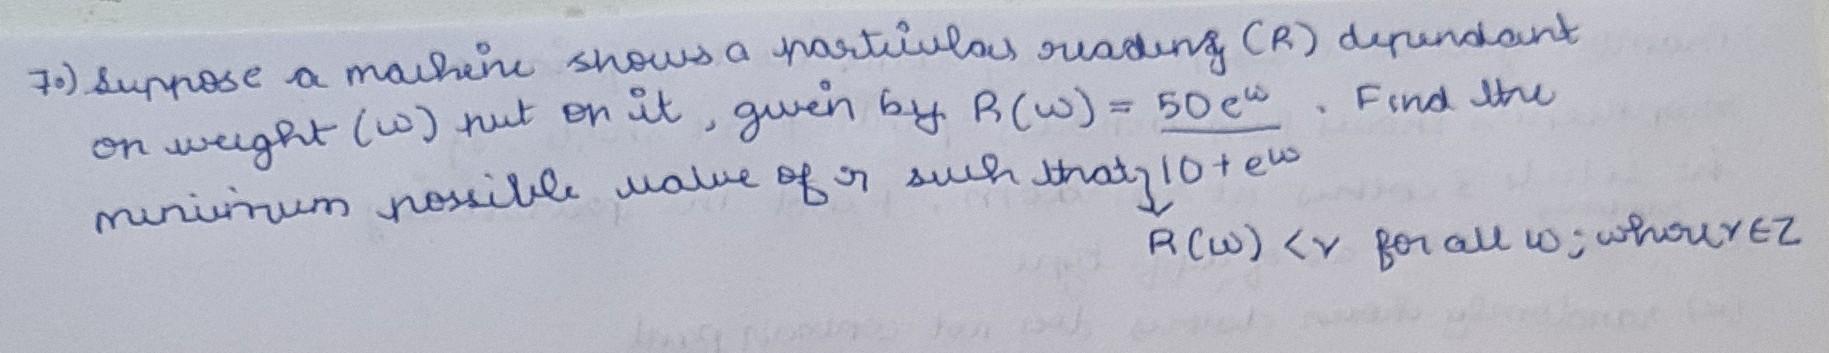 7.) Suppose a machine shows a particular reading (R) dependant
on weight (w) put on it, given by R(w) = 50e^w / 10+e^w . Find the
minimum possible value of r such that
R(w) < r for all w; where r∈Z